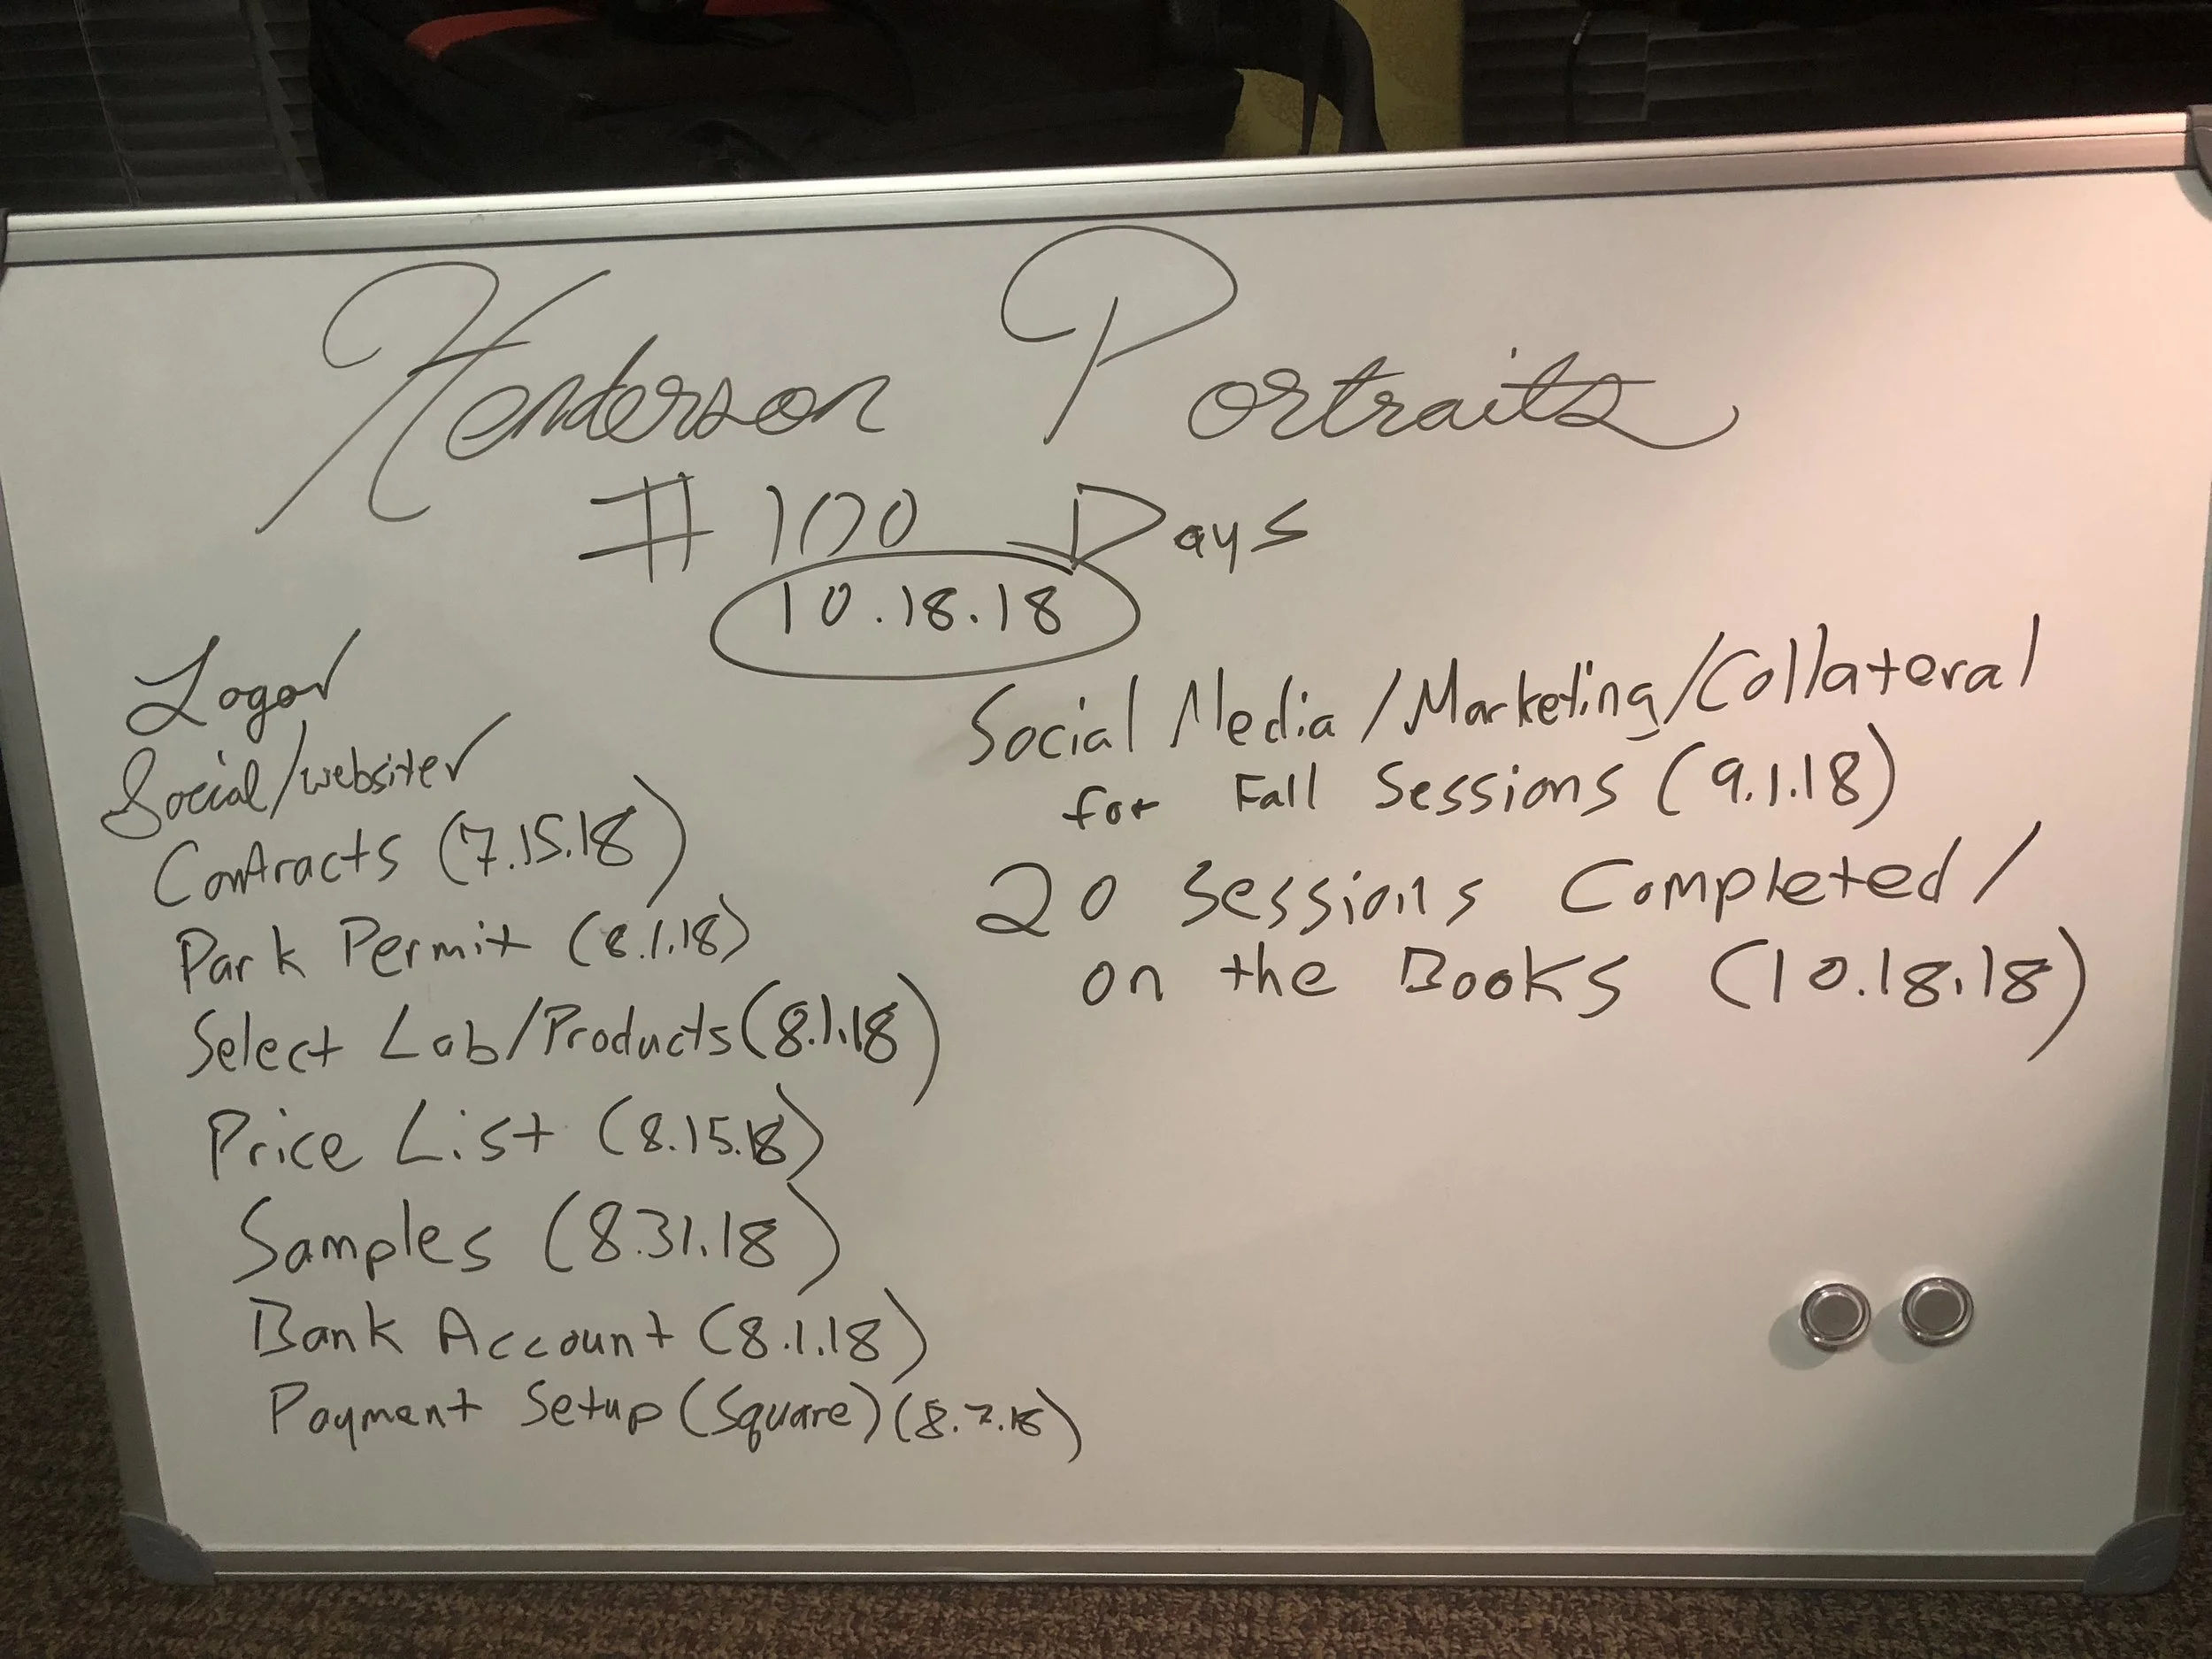 Henderson Portraits
# 100 Days
10.18.18
Logo ✓
Social/website ✓
Contracts (7.15.18)
Park Permit (8.1.18)
Select Lab/Products (8.1.18)
Price List (8.15.18)
Samples (8.31.18)
Bank Account (8.1.18)
Payment Setup (Square) (8.7.18)
Social Media/Marketing/Collateral
for Fall Sessions (9.1.18)
20 Sessions Completed/
on the Books (10.18.18)